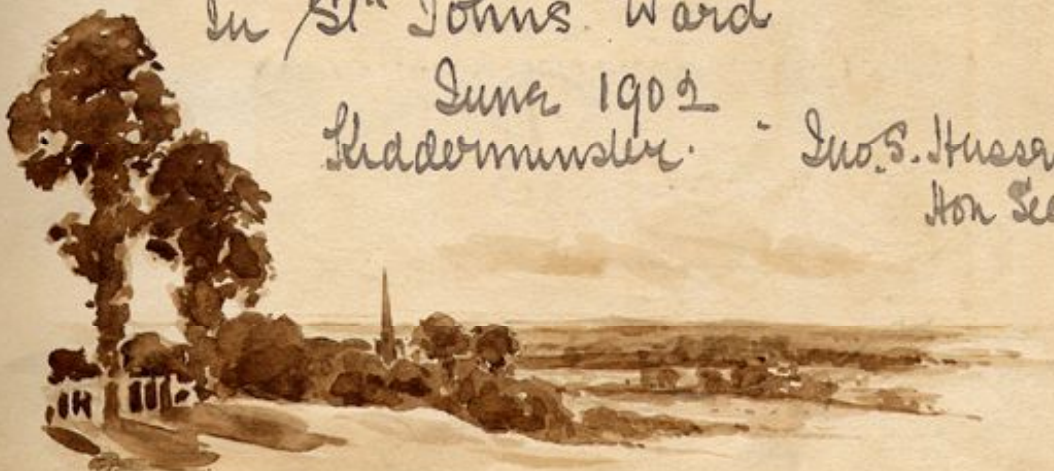 In St. Johns Ward
June 1902
Kidderminster.
Jno. S.
Hon